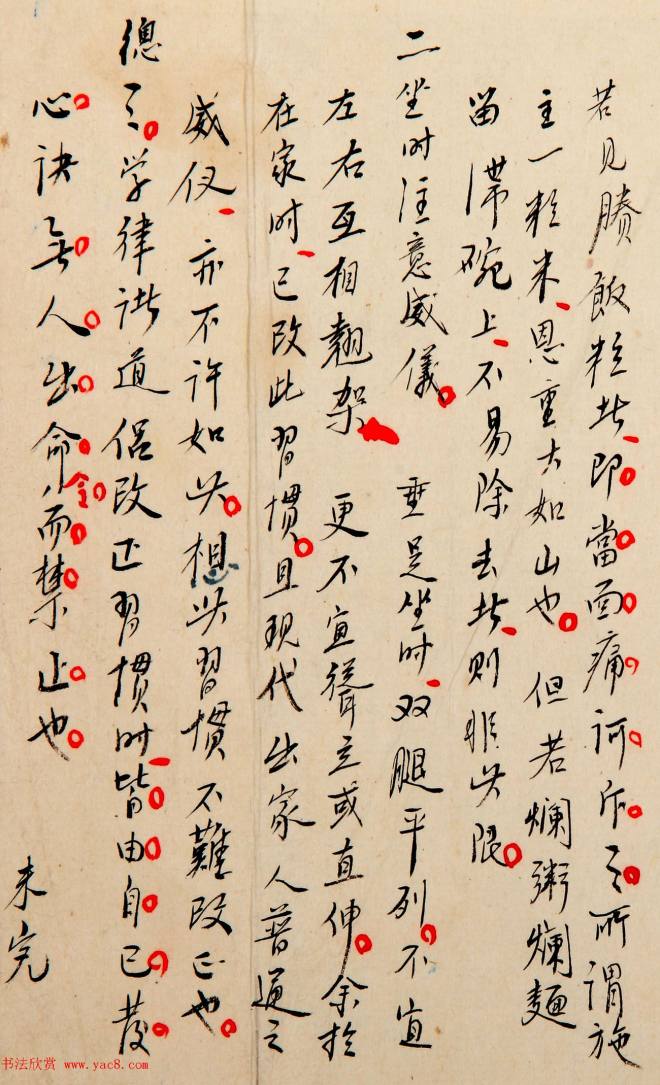 若見賸飯粒者、即當面痛訶斥之。所謂施
主一粒米、恩重大如山也。但若爛粥爛麵
留滯碗上、不易除去者、則非此限。
二坐時注意威儀。垂足坐時、双腿平列。不宜
左右互相翹架、更不宜聳立或直伸。余於
在家時、已改此習慣。且現代出家人普通之
威仪、亦不许如此。想此習慣不難改正也。
總之、学律諸道侶改正習慣時、皆由自己發
心决無人出命令而禁止也。
未完
书法欣赏 www.yac8.com